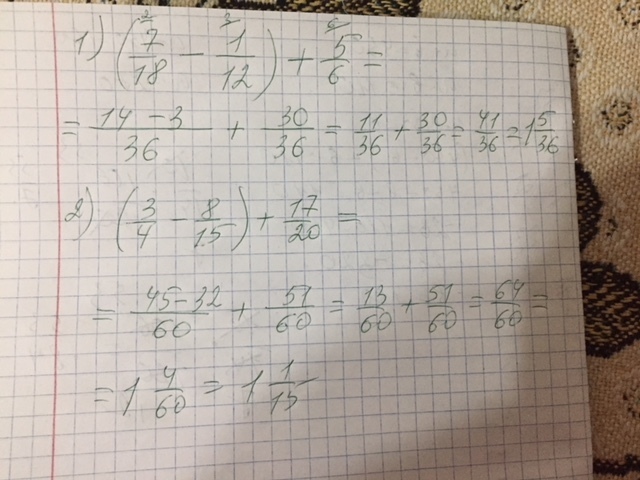 1) (7/18 − 1/12) + 5/6 =
= 14 − 3/36 + 30/36 = 11/36 + 30/36 = 41/36 = 1 5/36
2) (3/4 − 8/15) + 17/20 =
= 45 − 32/60 + 51/60 = 13/60 + 51/60 = 64/60 =
= 1 4/60 = 1 1/15